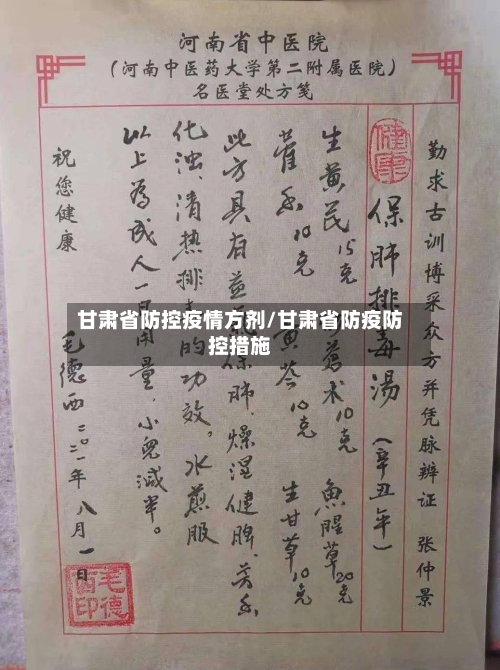 河南省中医院
(河南中医药大学第二附属医院)
名医堂处方笺
勤求古训博采众方并凭脉辨证 张仲景
健康
保肺排毒汤(辛丑年)
生黄芪15克 苍术10克 鱼腥草20克
藿香10克 黄芩10克 生甘草10克
此方具有益 保肺、燥湿健脾、芳香
化浊、清热排 的功效。水煎服
以上为成人一日用量,小儿减半。
毛德西二〇二一年八月一日
祝您健康
毛德西印
甘肃省防控疫情方剂/甘肃省防疫防
控措施